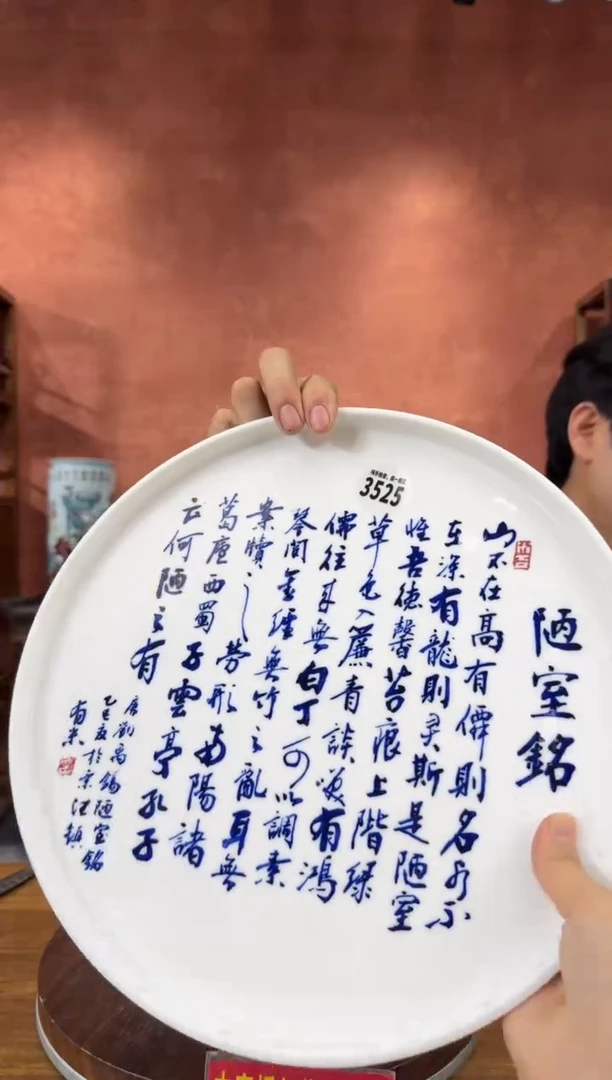 3525
陋室銘
山不在高有僊則名水不
在深有龍則灵斯是陋室
惟吾德馨苔痕上階綠
草色入簾青談笑有鴻
儒往来無白丁可以調素
琴閱金經無竹之亂耳無
案牘之勞形南陽諸
葛廬西蜀子雲亭孔子
云何陋之有
唐劉禹錫陋室銘
乙巳夏於